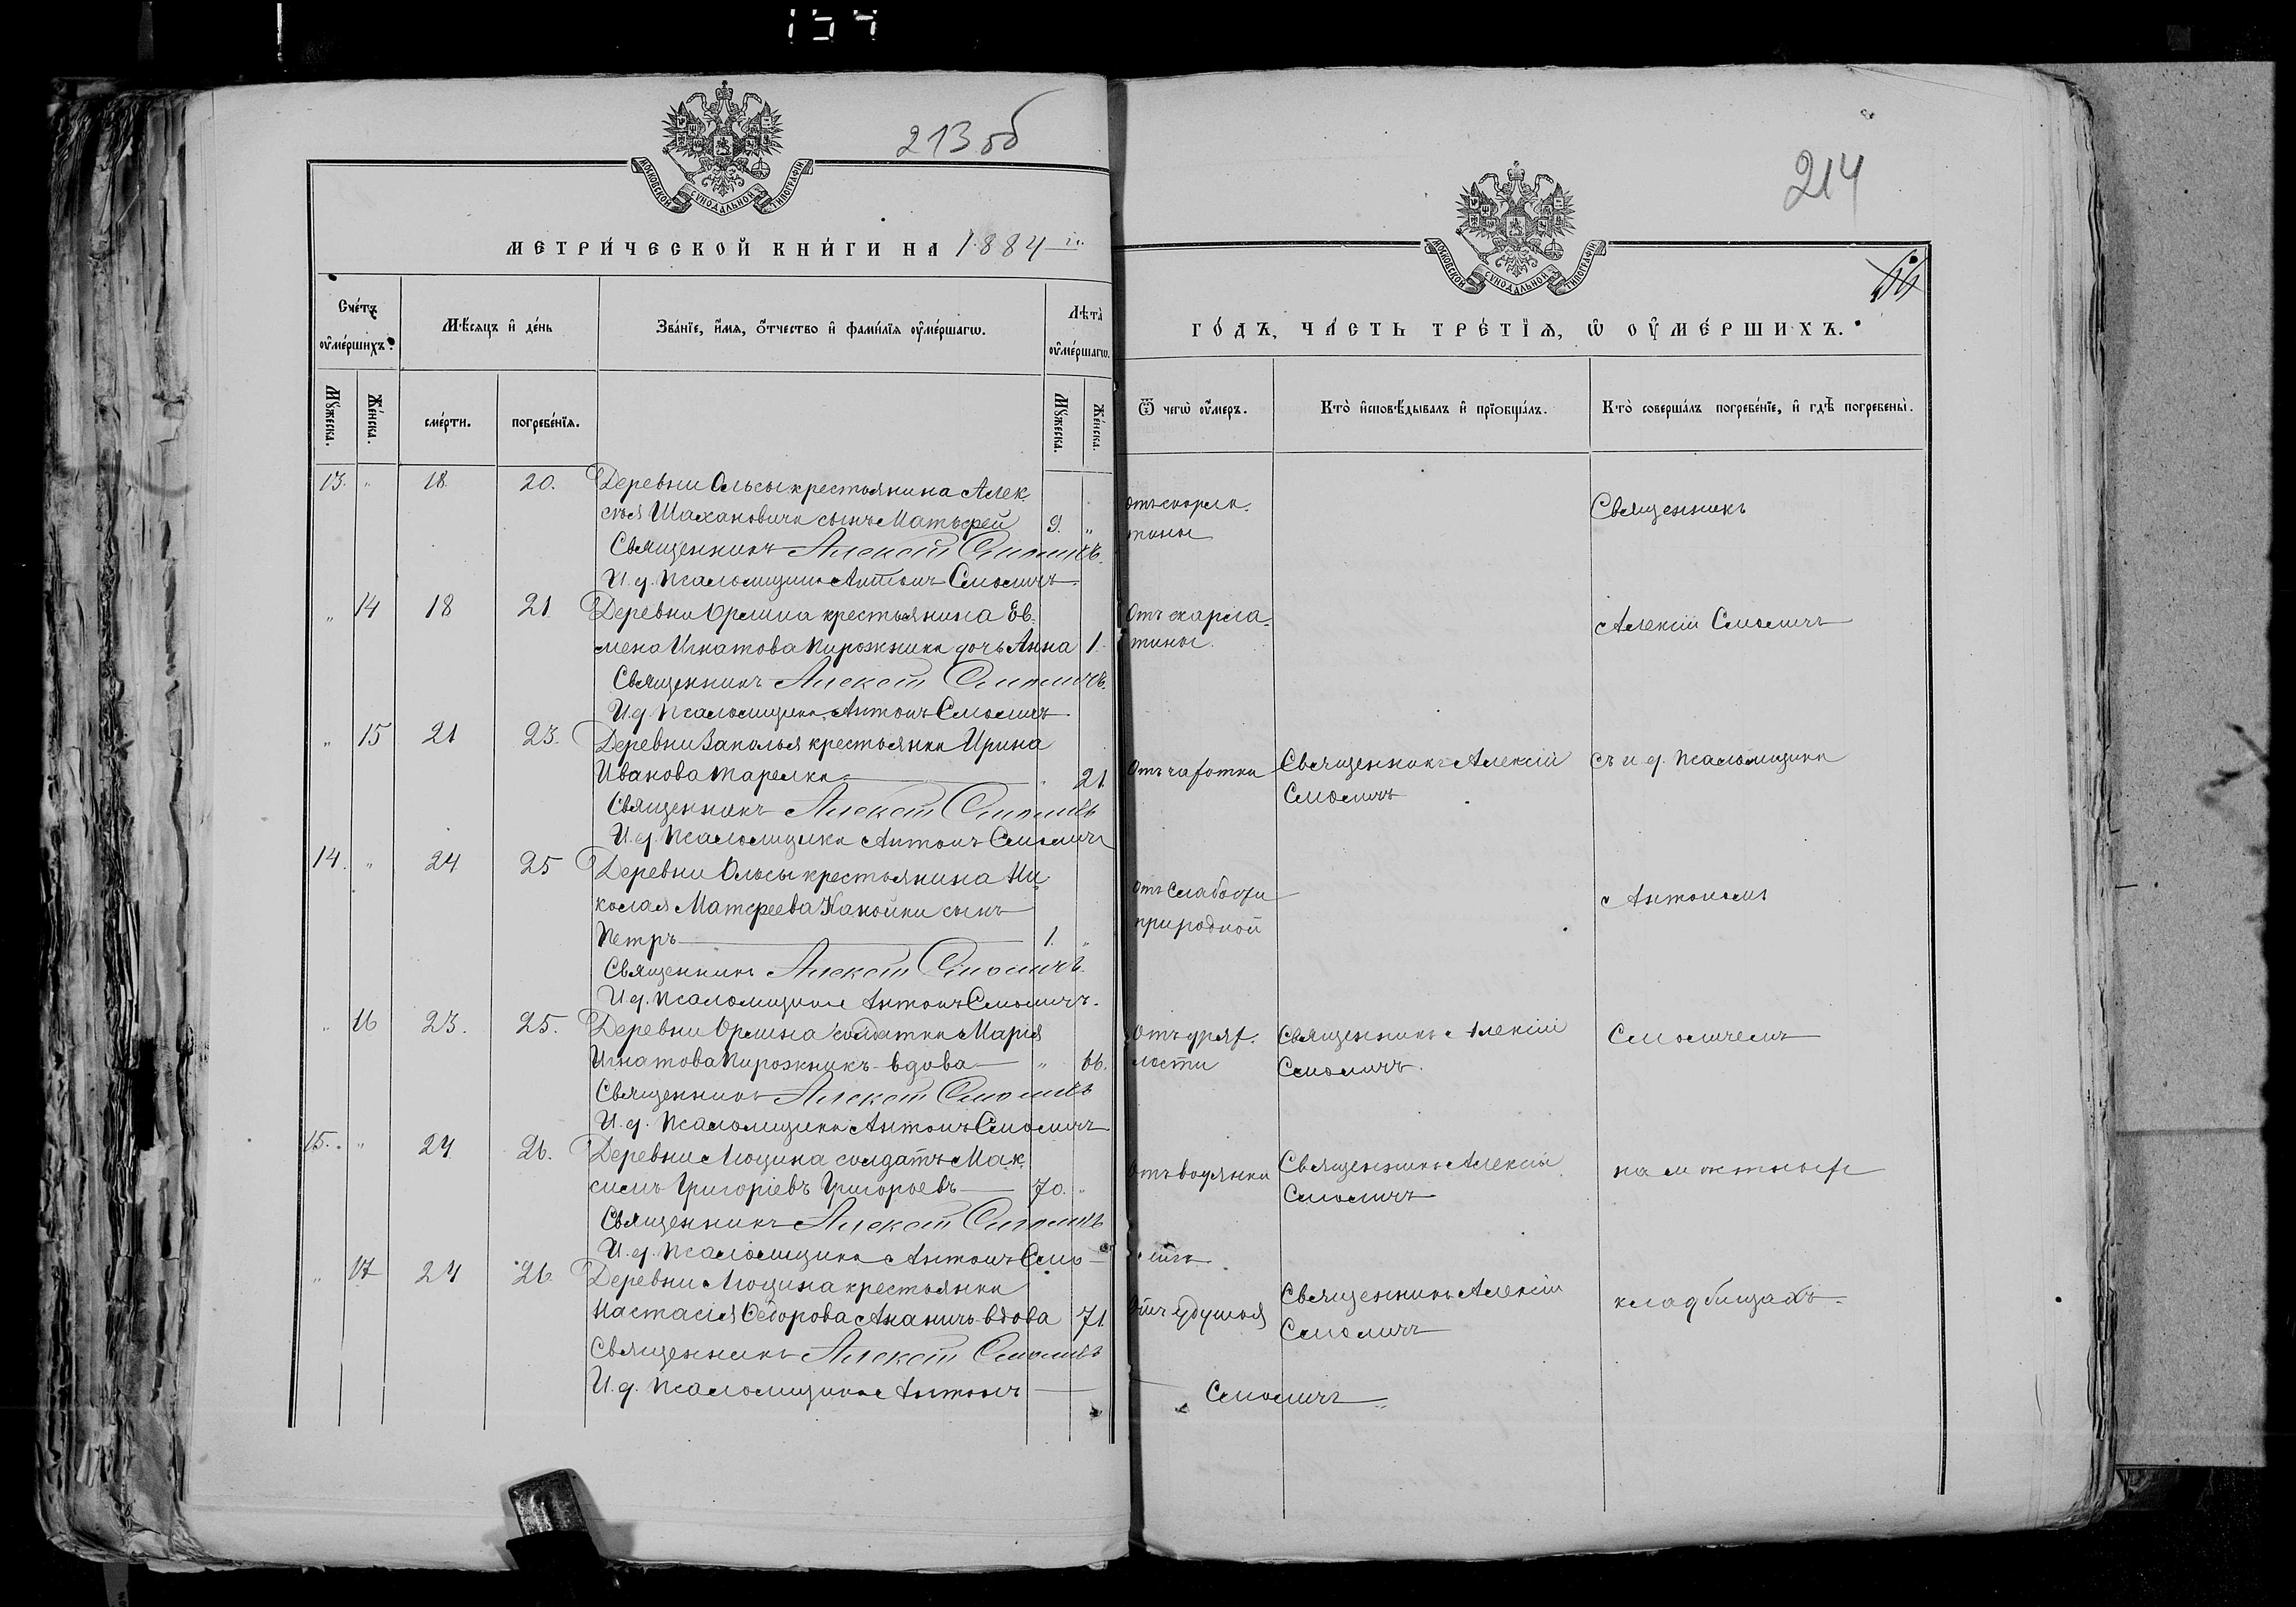 213 об
МОСКОВСКОЙ СѴНОДАЛЬНОЙ ТИПОГРАФІИ
МЕТРИ́ЧЕСКОЙ КНИ́ГИ НА 1884
Сче́тъ оу҆ме́ршихъ.
Мѣ́сяцъ и҆ де́нь
Зва́нїе, и҆́мя, ѻ҆́тчество и҆ фами́лїя оу҆ме́ршагѡ.
Лѣ́та оу҆ме́ршагѡ.
Мꙋ́жеска.
Же́нска.
сме́рти.
погребе́нїя.
Мꙋ́жеска.
Же́нска.
13. " 18 20. Деревни Ольсы крестьянина Алек-
сѣя Шахановича сынъ Матѳей 9. "
Священникъ Алексѣй Смоличъ.
И. д. Псаломщика Антонъ Смоличъ.
" 14 18 21 Деревни Орлина крестьянина Ев-
мена Игнатова Пирожника дочь Анна 1.
Священникъ Алексѣй Смоличъ.
И. д. Псаломщика Антонъ Смоличъ
" 15 21 23. Деревни Заполья крестьянка Ирина
Иванова Тарелка 21.
Священникъ Алексѣй Смоличъ
И. д. Псаломщика Антонъ Смоличъ
14. " 24 25 Деревни Ольсы крестьянина Ни-
колая Матѳеева Канойки сынъ
Петръ 1. "
Священникъ Алексѣй Смоличъ.
И. д. Псаломщика Антонъ Смоличъ.
" 16 23. 25. Деревни Орлина солдатка Марія
Игнатова Пирожникъ - вдова " 66.
Священникъ Алексѣй Смоличъ
И. д. Псаломщика Антонъ Смоличъ
15. " 24 26. Деревни Люцина солдатъ Мак-
симъ Григоріевъ Григорьевъ 70. "
Священникъ Алексѣй Смоличъ
И. д. Псаломщика Антонъ Смо-
" 17 24 26. Деревни Люцина крестьянка
Настасія Ѳедорова Ананичъ - вдова 71.
Священникъ Алексѣй Смоличъ
И. д. Псаломщика Антонъ
214
МОСКОВСКОЙ СѴНОДАЛЬНОЙ ТИПОГРАФІИ
ГО́ДЪ, ЧА́СТЬ ТРЕ́ТЇѦ, Ѡ҆ ОУ҆МЕ́РШИХЪ.
Ѿ чегѡ̀ оу҆́меръ.
Кто̀ и҆сповѣ́дывалъ и҆ прїобща́лъ.
Кто̀ соверша́лъ погребе́нїе, и҆ гдѣ̀ погребены̀.
Отъ скарла-
тины
Священникъ
Отъ скарла-
тины.
Алексій Смоличъ
Отъ чахотки Священникъ Алексій
Смоличъ
съ и. д. псаломщика
Отъ слабости
природной
Антономъ
Отъ дрях-
лости
Священникъ Алексій
Смоличъ.
Смоличемъ
Отъ водянки Священникъ Алексій
Смоличъ
на мѣстныхъ
личъ
Отъ удушья Священникъ Алексій
Смоличъ
кладбищахъ.
Смоличъ